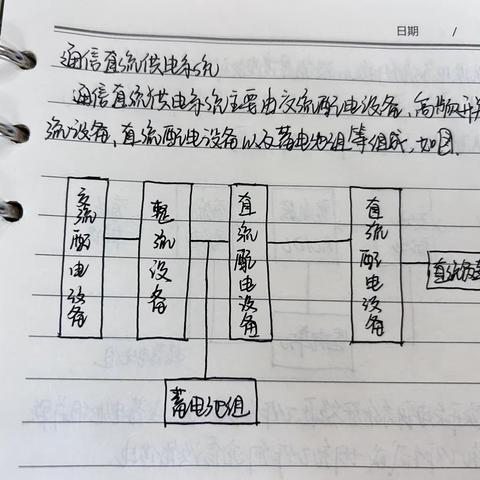 日期 /
通信直流供电系统
通信直流供电系统主要由交流配电设备、高频开关
流设备、直流配电设备以及蓄电池组等组成，如图.
交流配电设备
整流设备
直流配电设备
直流配电设备
直流负载
蓄电池组